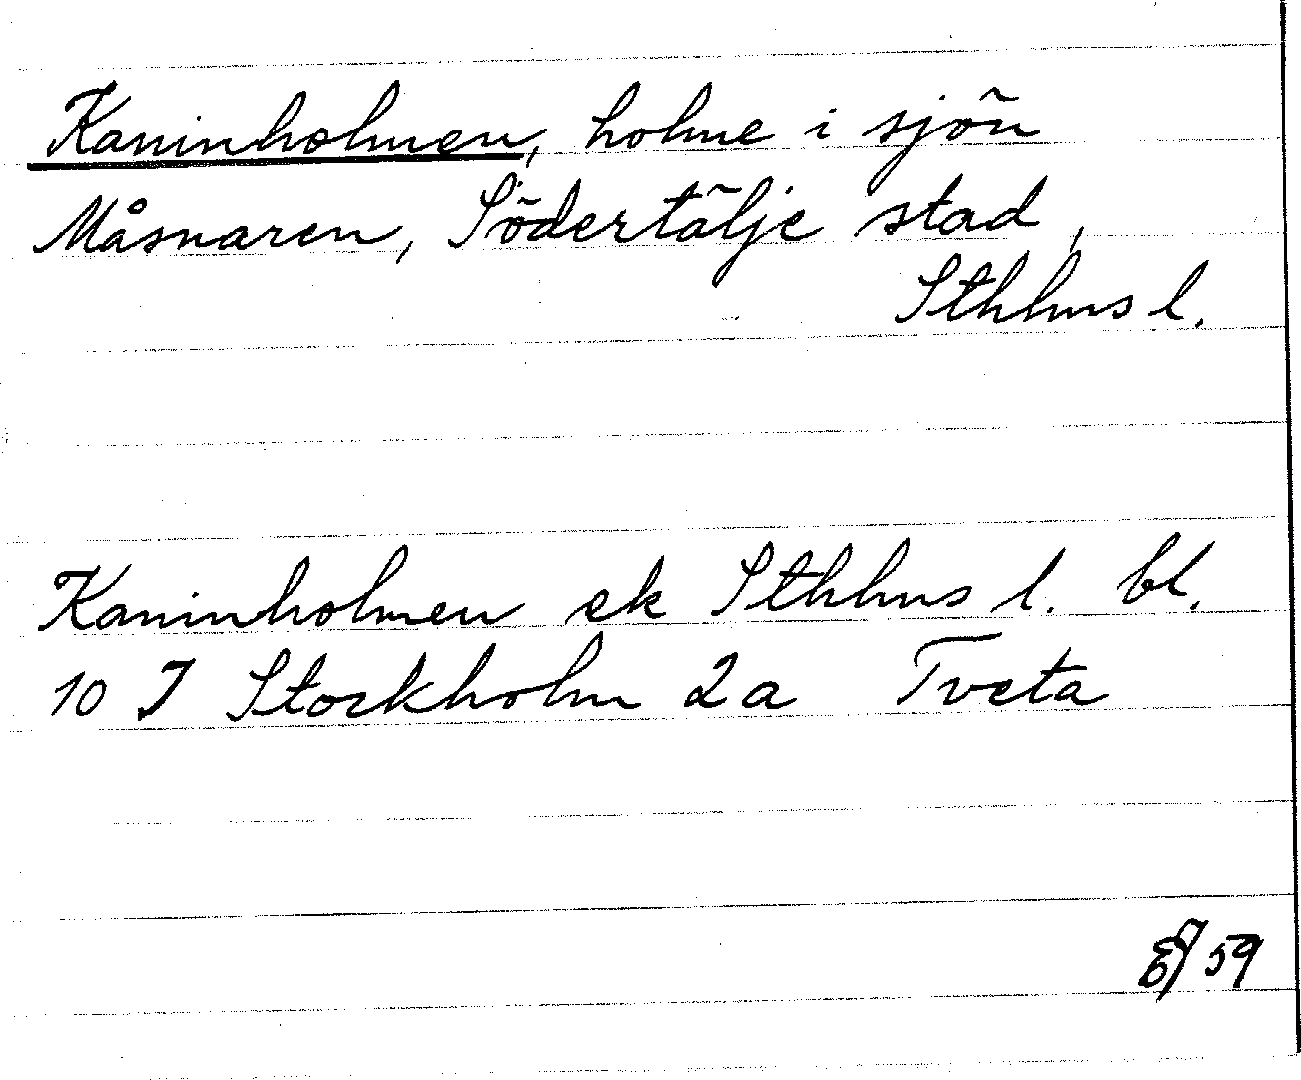 Kaninholmen, holme i sjön
Måsnaren, Södertälje stad,
Sthlms l.
Kaninholmen ek Sthlms l. bl.
10 I Stockholm 2a Tveta
59